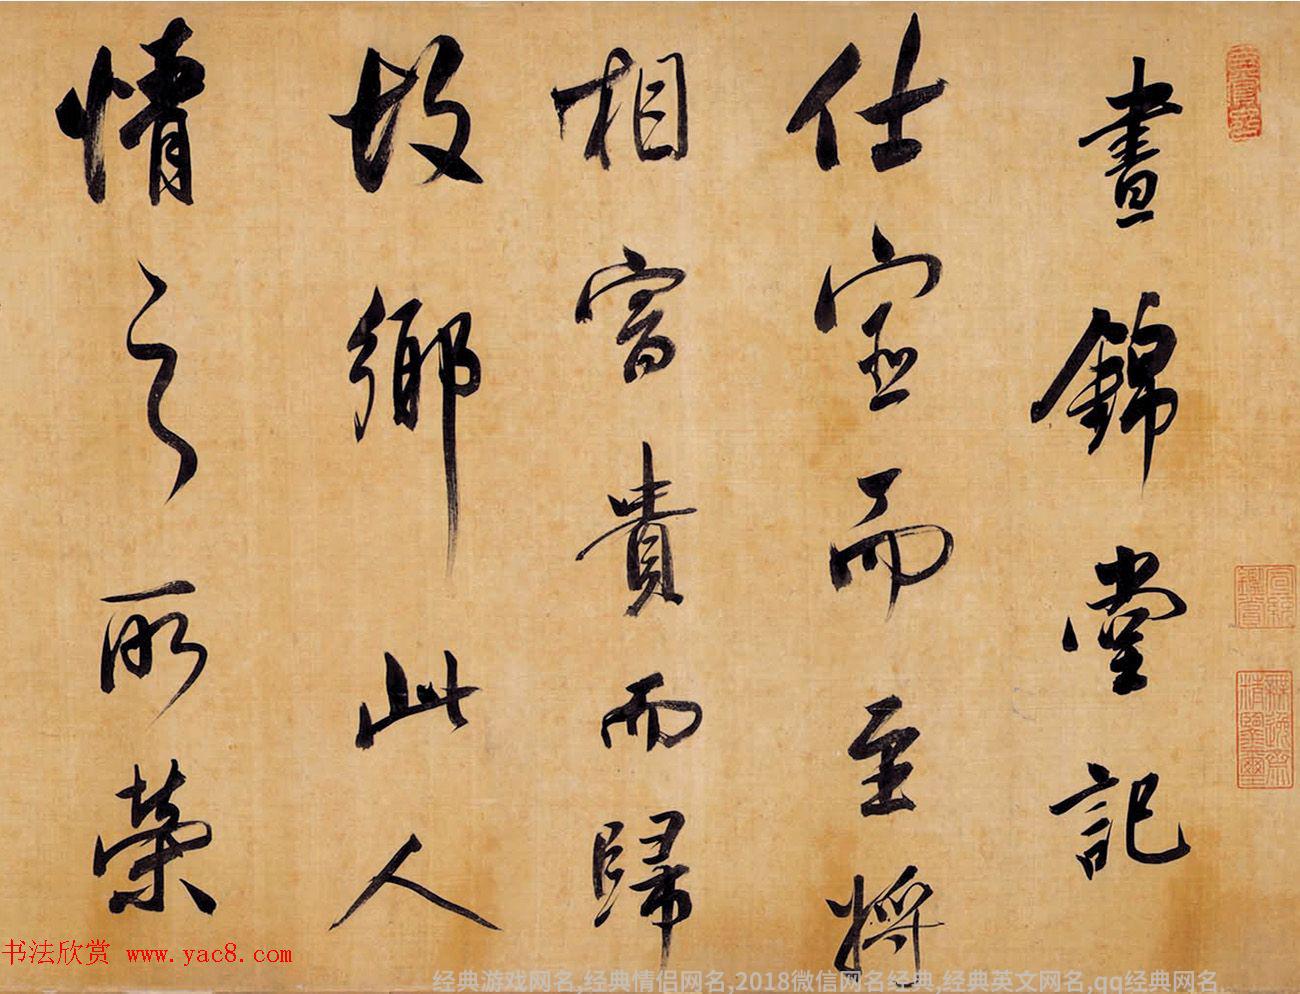 玄賞齋
宣統鑑賞
無逸齋精鑒璽
晝錦堂記
仕宦而至將
相富貴而歸
故鄉此人
情之所榮
书法欣赏 www.yac8.com
经典游戏网名,经典情侣网名,2018微信网名经典,经典英文网名,qq经典网名